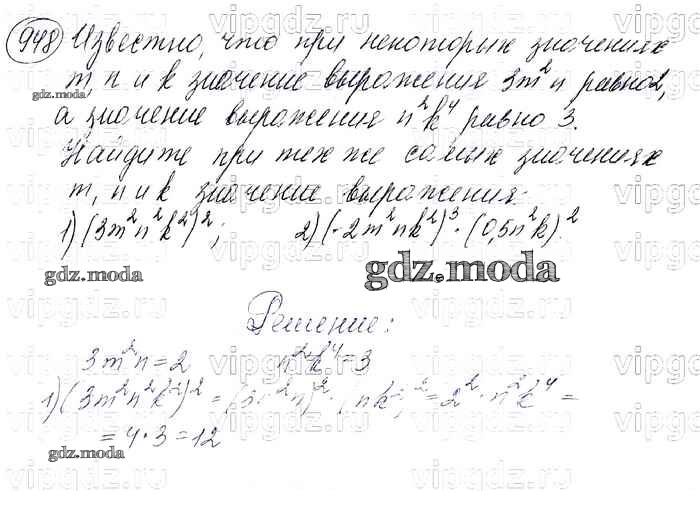 948 Известно, что при некоторых значениях
m, n и k значение выражения 3m²n равно 2,
gdz.moda
а значение выражения n²k⁴ равно 3.
Найдите при тех же самых значениях
m, n и k значение выражения:
1) (3m²n²k²)²; 2) (-2m²nk²)³ · (0,5n²k)²
gdz.moda
gdz.moda
Решение:
3m²n = 2 n²k⁴ = 3
1) (3m²n²k²)² = (3m²n)² · (nk²)² = 2² · n²k⁴ =
= 4 · 3 = 12
gdz.moda
gdz.moda
vipgdz.ru